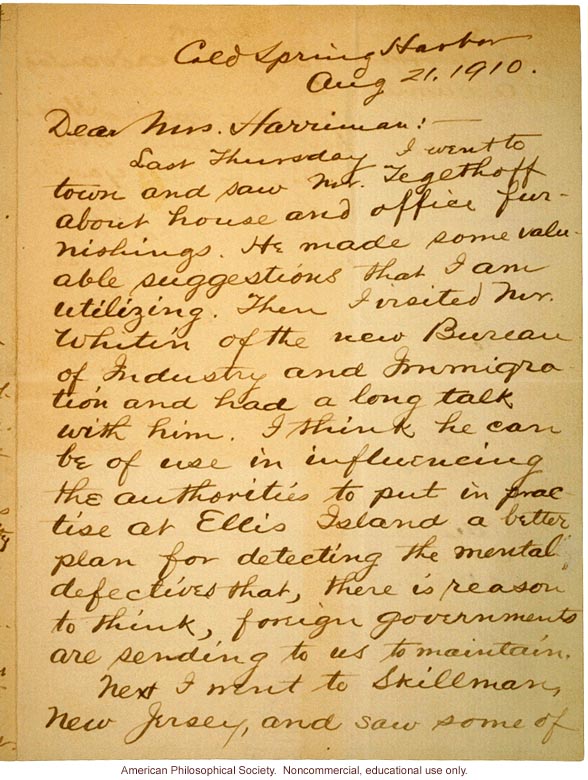 Cold Spring Harbor
Aug 21, 1910.
Dear Mrs. Harriman:-
Last Thursday I went to
town and saw Mr. Tegethoff
about house and office fur-
nishings. He made some valu-
able suggestions that I am
utilizing. Then I visited Mr.
Whitin of the new Bureau
of Industry and Immigra-
tion and had a long talk
with him. I think he can
be of use in influencing
the authorities to put in prac-
tise at Ellis Island a better
plan for detecting the mental
defectives that, there is reason
to think, foreign governments
are sending to us to maintain.
Next I went to Skillman,
New Jersey, and saw some of
American Philosophical Society. Noncommercial, educational use only.